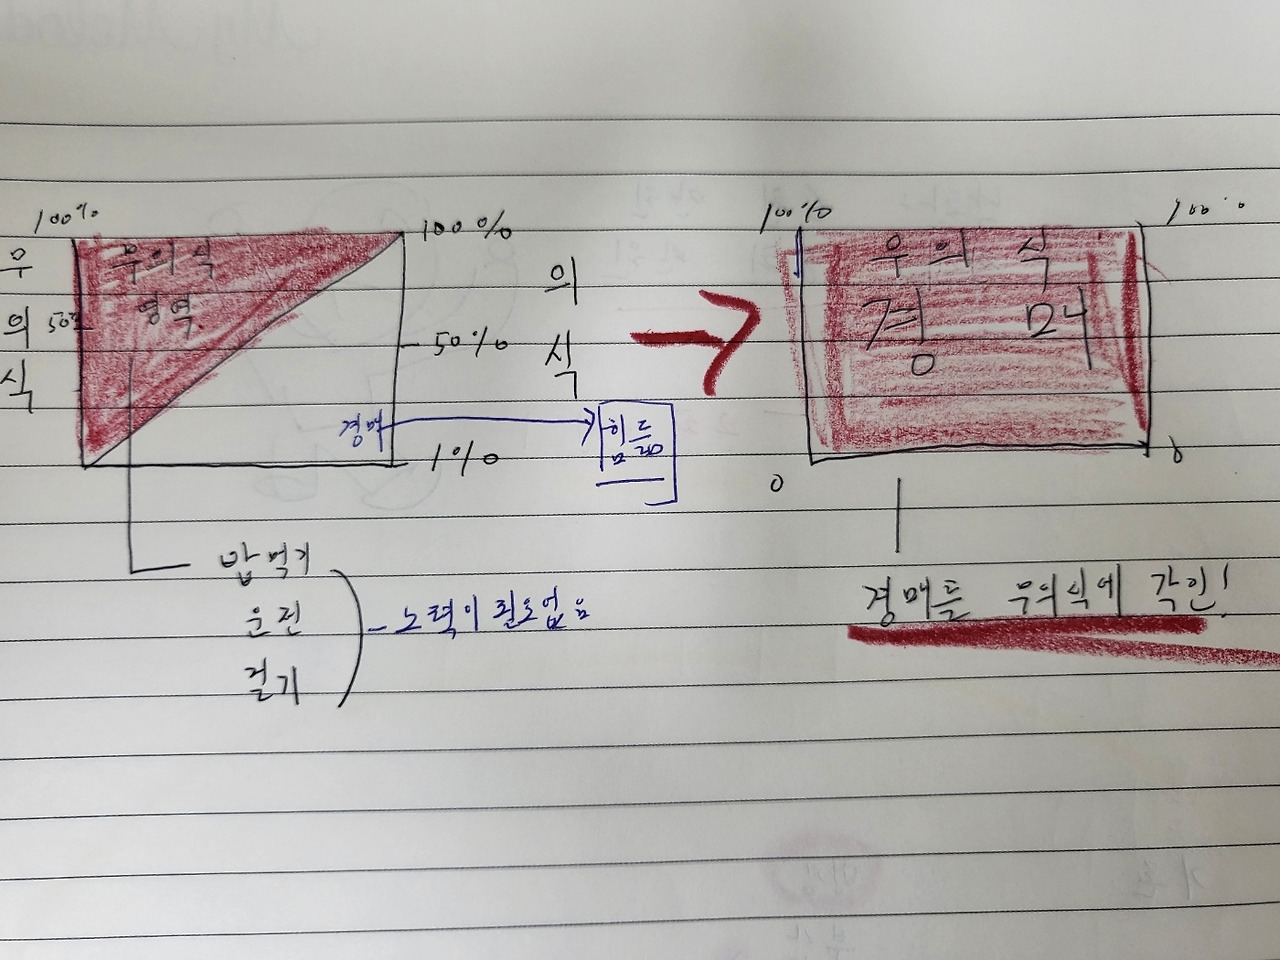 100%
100%
무의식
무의식
영역.
50%
50%
의식
1%
경매
밥 먹기
운전
걷기
노력이 필요없음
100%
무의식
경매
0
경매를 무의식에 각인!